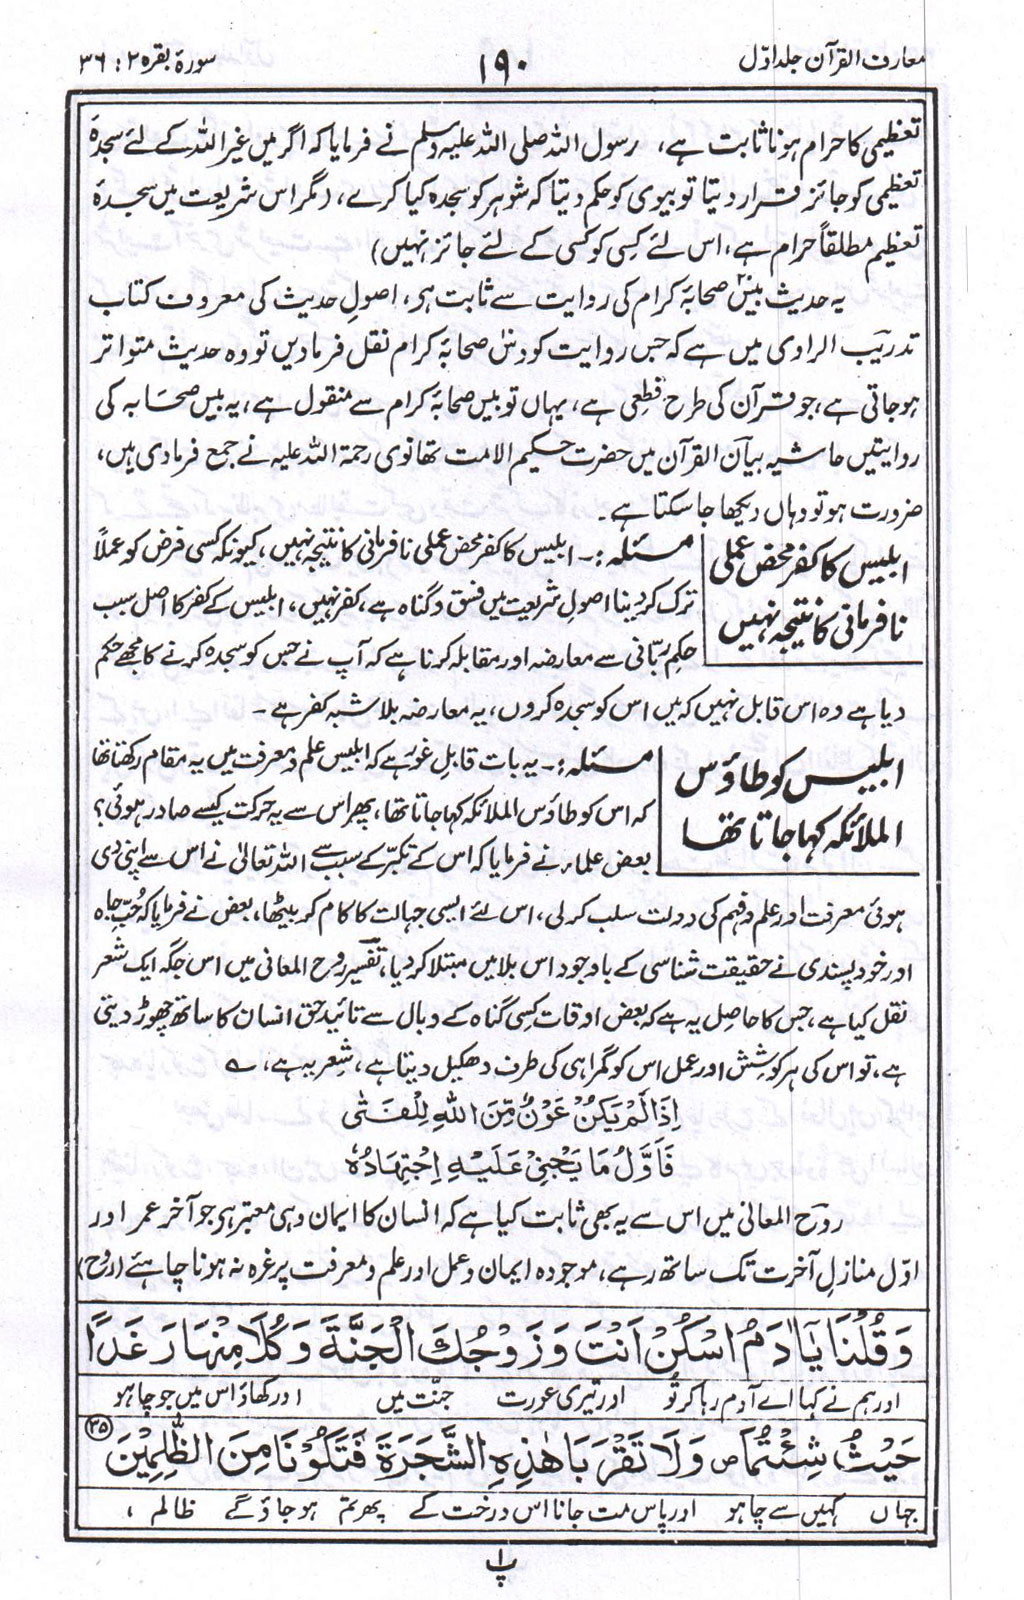 معارف القرآن جلد اوّل
۱۹۰
سورۃ بقرہ ۲ : ۳۶
تعظیمی کا حرام ہونا ثابت ہے، رسول اللہ صلی اللہ علیہ وسلم نے فرمایا کہ اگر میں غیر اللہ کے لئے سجدۂ
تعظیمی کو جائز قرار دیتا تو بیوی کو حکم دیتا کہ شوہر کو سجدہ کیا کرے، (مگر اس شریعت میں سجدۂ
تعظیم مطلقاً حرام ہے، اس لئے کسی کو کسی کے لئے جائز نہیں)
یہ حدیث بیس صحابۂ کرام کی روایت سے ثابت ہے، اصولِ حدیث کی معروف کتاب
تدریب الراوی میں ہے کہ جس روایت کو دس صحابۂ کرام نقل فرمادیں تو وہ حدیث متواتر
ہوجاتی ہے، جو قرآن کی طرح قطعی ہے، یہاں تو بیس صحابۂ کرام سے منقول ہے، یہ بیس صحابہ کی
روایتیں حاشیہ بیان القرآن میں حضرت حکیم الامت تھانوی رحمۃ اللہ علیہ نے جمع فرمادی ہیں،
ضرورت ہو تو وہاں دیکھا جا سکتا ہے۔
ابلیس کا کفر محض عملی
نافرمانی کا نتیجہ نہیں
مسئلہ :۔ ابلیس کا کفر محض عملی نافرمانی کا نتیجہ نہیں، کیونکہ کسی فرض کو عملاً
ترک کر دینا اصولِ شریعت میں فسق و گناہ ہے، کفر نہیں، ابلیس کے کفر کا اصل سبب
حکمِ ربّانی سے معارضہ اور مقابلہ کرنا ہے کہ آپ نے جس کو سجدہ کرنے کا مجھے حکم
دیا ہے وہ اس قابل نہیں کہ میں اس کو سجدہ کروں، یہ معارضہ بلاشبہ کفر ہے۔
ابلیس کو طاؤس
الملائکہ کہا جاتا تھا
مسئلہ :۔ یہ بات قابلِ غور ہے کہ ابلیس علم و معرفت میں یہ مقام رکھتا تھا
کہ اس کو طاؤس الملائکہ کہا جاتا تھا، پھر اس سے یہ حرکت کیسے صادر ہوئی؟
بعض علماء نے فرمایا کہ اس کے تکبّر کے سبب سے اللہ تعالیٰ نے اس سے اپنی دی
ہوئی معرفت اور علم و فہم کی دولت سلب کرلی، اس لئے ایسی جہالت کا کام کر بیٹھا، بعض نے فرمایا کہ حُبِّ جاہ
اور خود پسندی نے حقیقت شناسی کے باوجود اس بلا میں مبتلا کر دیا، تفسیر روح المعانی میں اس جگہ ایک شعر
نقل کیا ہے، جس کا حاصل یہ ہے کہ بعض اوقات کسی گناہ کے وبال سے تائیدِ حق انسان کا ساتھ چھوڑ دیتی
ہے، تو اس کی ہر کوشش اور عمل اس کو گمراہی کی طرف دھکیل دیتا ہے، شعر یہ ہے، ؎
اِذَا لَمْ يَكُنْ عَوْنٌ مِّنَ اللهِ لِلْفَتٰى
فَاَوَّلُ مَا يَجْنِيْ عَلَيْهِ اِجْتِهَادُهٗ
روح المعانی میں اس سے یہ بھی ثابت کیا ہے کہ انسان کا ایمان وہی معتبر ہے جو آخر عمر اور
اوّل منازلِ آخرت تک ساتھ رہے، موجودہ ایمان و عمل اور علم و معرفت پر غرہ نہ ہونا چاہئے (روح)
وَقُلْنَا يٰۤاٰدَمُ اسْكُنْ اَنْتَ وَزَوْجُكَ الْجَنَّةَ وَكُلَا مِنْهَا رَغَدًا
اور ہم نے کہا اے آدم رہا کر تو اور تیری عورت جنّت میں اور کھاؤ اس میں جو چاہو
حَيْثُ شِئْتُمَا ص وَلَا تَقْرَبَا هٰذِهِ الشَّجَرَةَ فَتَكُوْنَا مِنَ الظّٰلِمِيْنَ ﴿۳۵﴾
جہاں کہیں سے چاہو اور پاس مت جانا اس درخت کے پھر تم ہو جاؤ گے ظالم ،
پ ۱